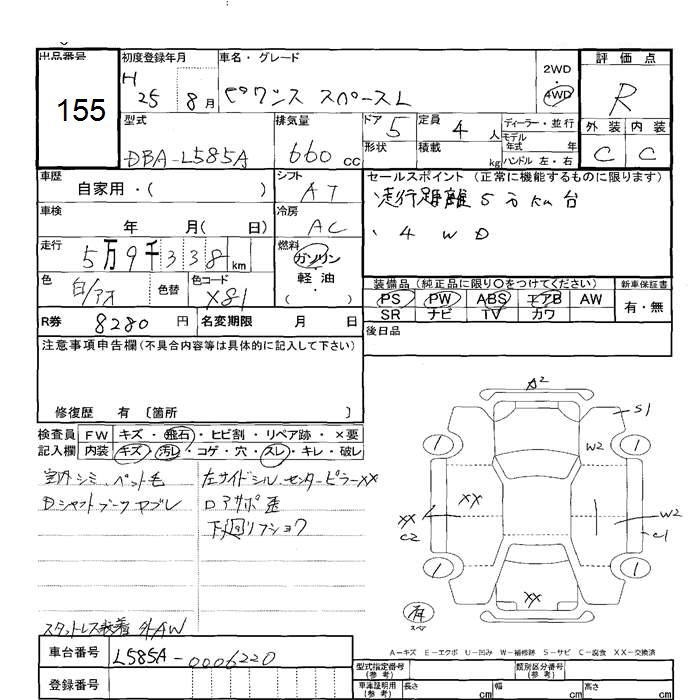 出品番号
155
初度登録年月
H 25 8月
車名・グレード
ピクシス スペースL
2WD
・
4WD
評価点
R
外装 内装
C C
型式
DBA-L585A
排気量
660 cc
ドア 5
形状
定員 4 人
積載 kg
ディーラー・並行
モデル
年式 年
ハンドル 左・右
車歴
自家用・( )
シフト
AT
セールスポイント(正常に機能するものに限ります)
走行距離5万km台
・4WD
車検
年 月( 日)
冷房
AC
走行
5万9千338km
燃料
ガソリン
軽油
( )
色
白/アオ
色替
色コード
X81
装備品(純正品に限り○をつけてください)
PS PW ABS エアB AW
SR ナビ TV カワ
新車保証書
有・無
R券 8280円
名変期限 月 日
後日品
注意事項申告欄(不具合内容等は具体的に記入して下さい)
修復歴 有〔箇所 〕
検査員
記入欄
FW キズ・飛石・ヒビ割・リペア跡・×要
内装 キズ・汚レ・コゲ・穴・スレ・キレ・破レ
室内シミ、ペット毛
Dシャフトブーツヤブレ
左サイドシル、センターピラーXX
ロアサポ歪
下廻リフショク
スタットレス装着 外AW
A2
S1
1
1
W2
XX
XX
C2
W2
C1
1
1
XX
有
スペア
A-キズ E-エクボ U-凹み W-補修跡 S-サビ C-腐食 XX-交換済
車台番号 L585A-0006220
登録番号
型式指定番号
(参考)
類別区分番号
(参考)
車庫証明用
(参考)
長さ cm
幅 cm
高さ cm